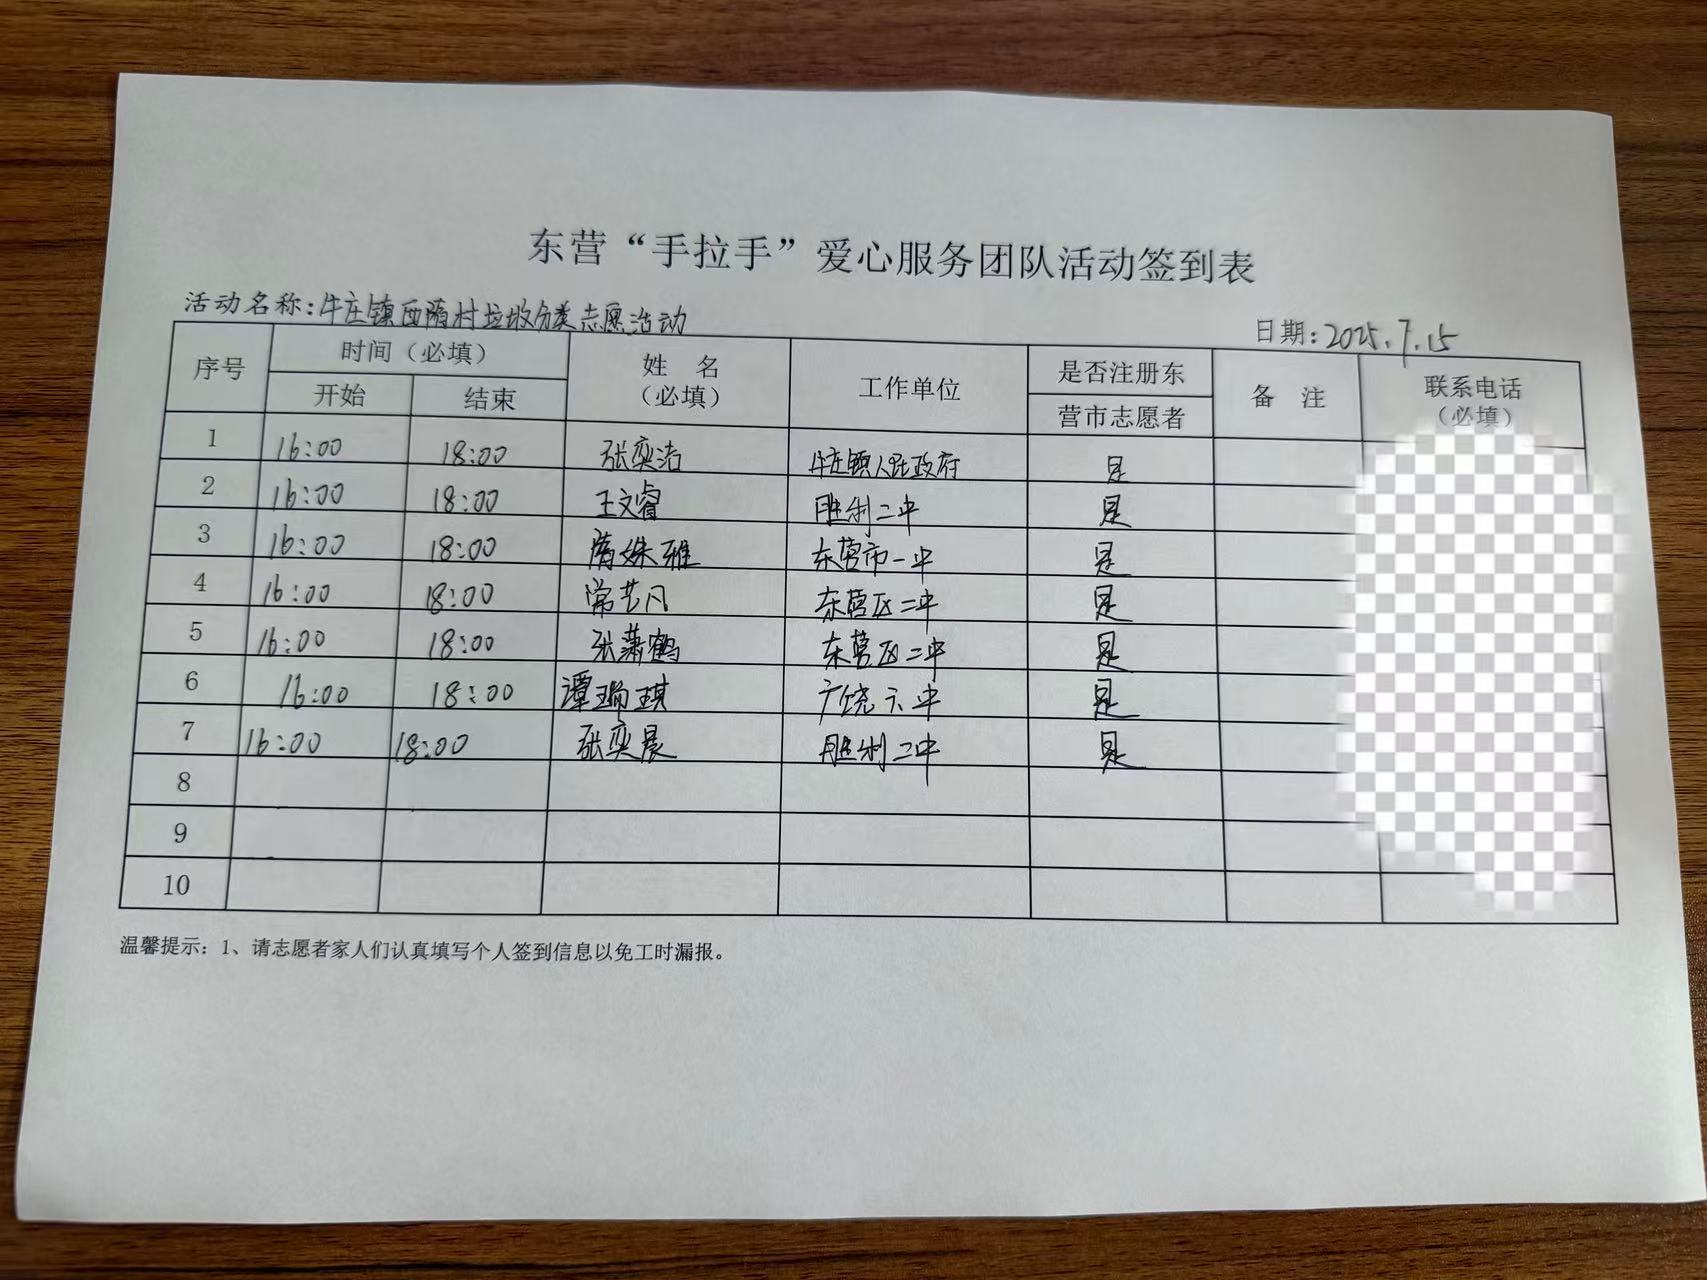 东营“手拉手”爱心服务团队活动签到表
活动名称：牛庄镇西隋村垃圾分类志愿活动 日期：2025.7.15
序号 时间（必填） 姓 名（必填） 工作单位 是否注册东营市志愿者 备 注 联系电话（必填）
开始 结束
1 16:00 18:00 张奕洁 牛庄镇人民政府 是
2 16:00 18:00 王文睿 胜利二中 是
3 16:00 18:00 隋姝雅 东营市一中 是
4 16:00 18:00 常艺凡 东营区二中 是
5 16:00 18:00 张潇鹤 东营区二中 是
6 16:00 18:00 谭瑞琪 广饶六中 是
7 16:00 18:00 张奕晨 胜利二中 是
8
9
10
温馨提示：1、请志愿者家人们认真填写个人签到信息以免工时漏报。